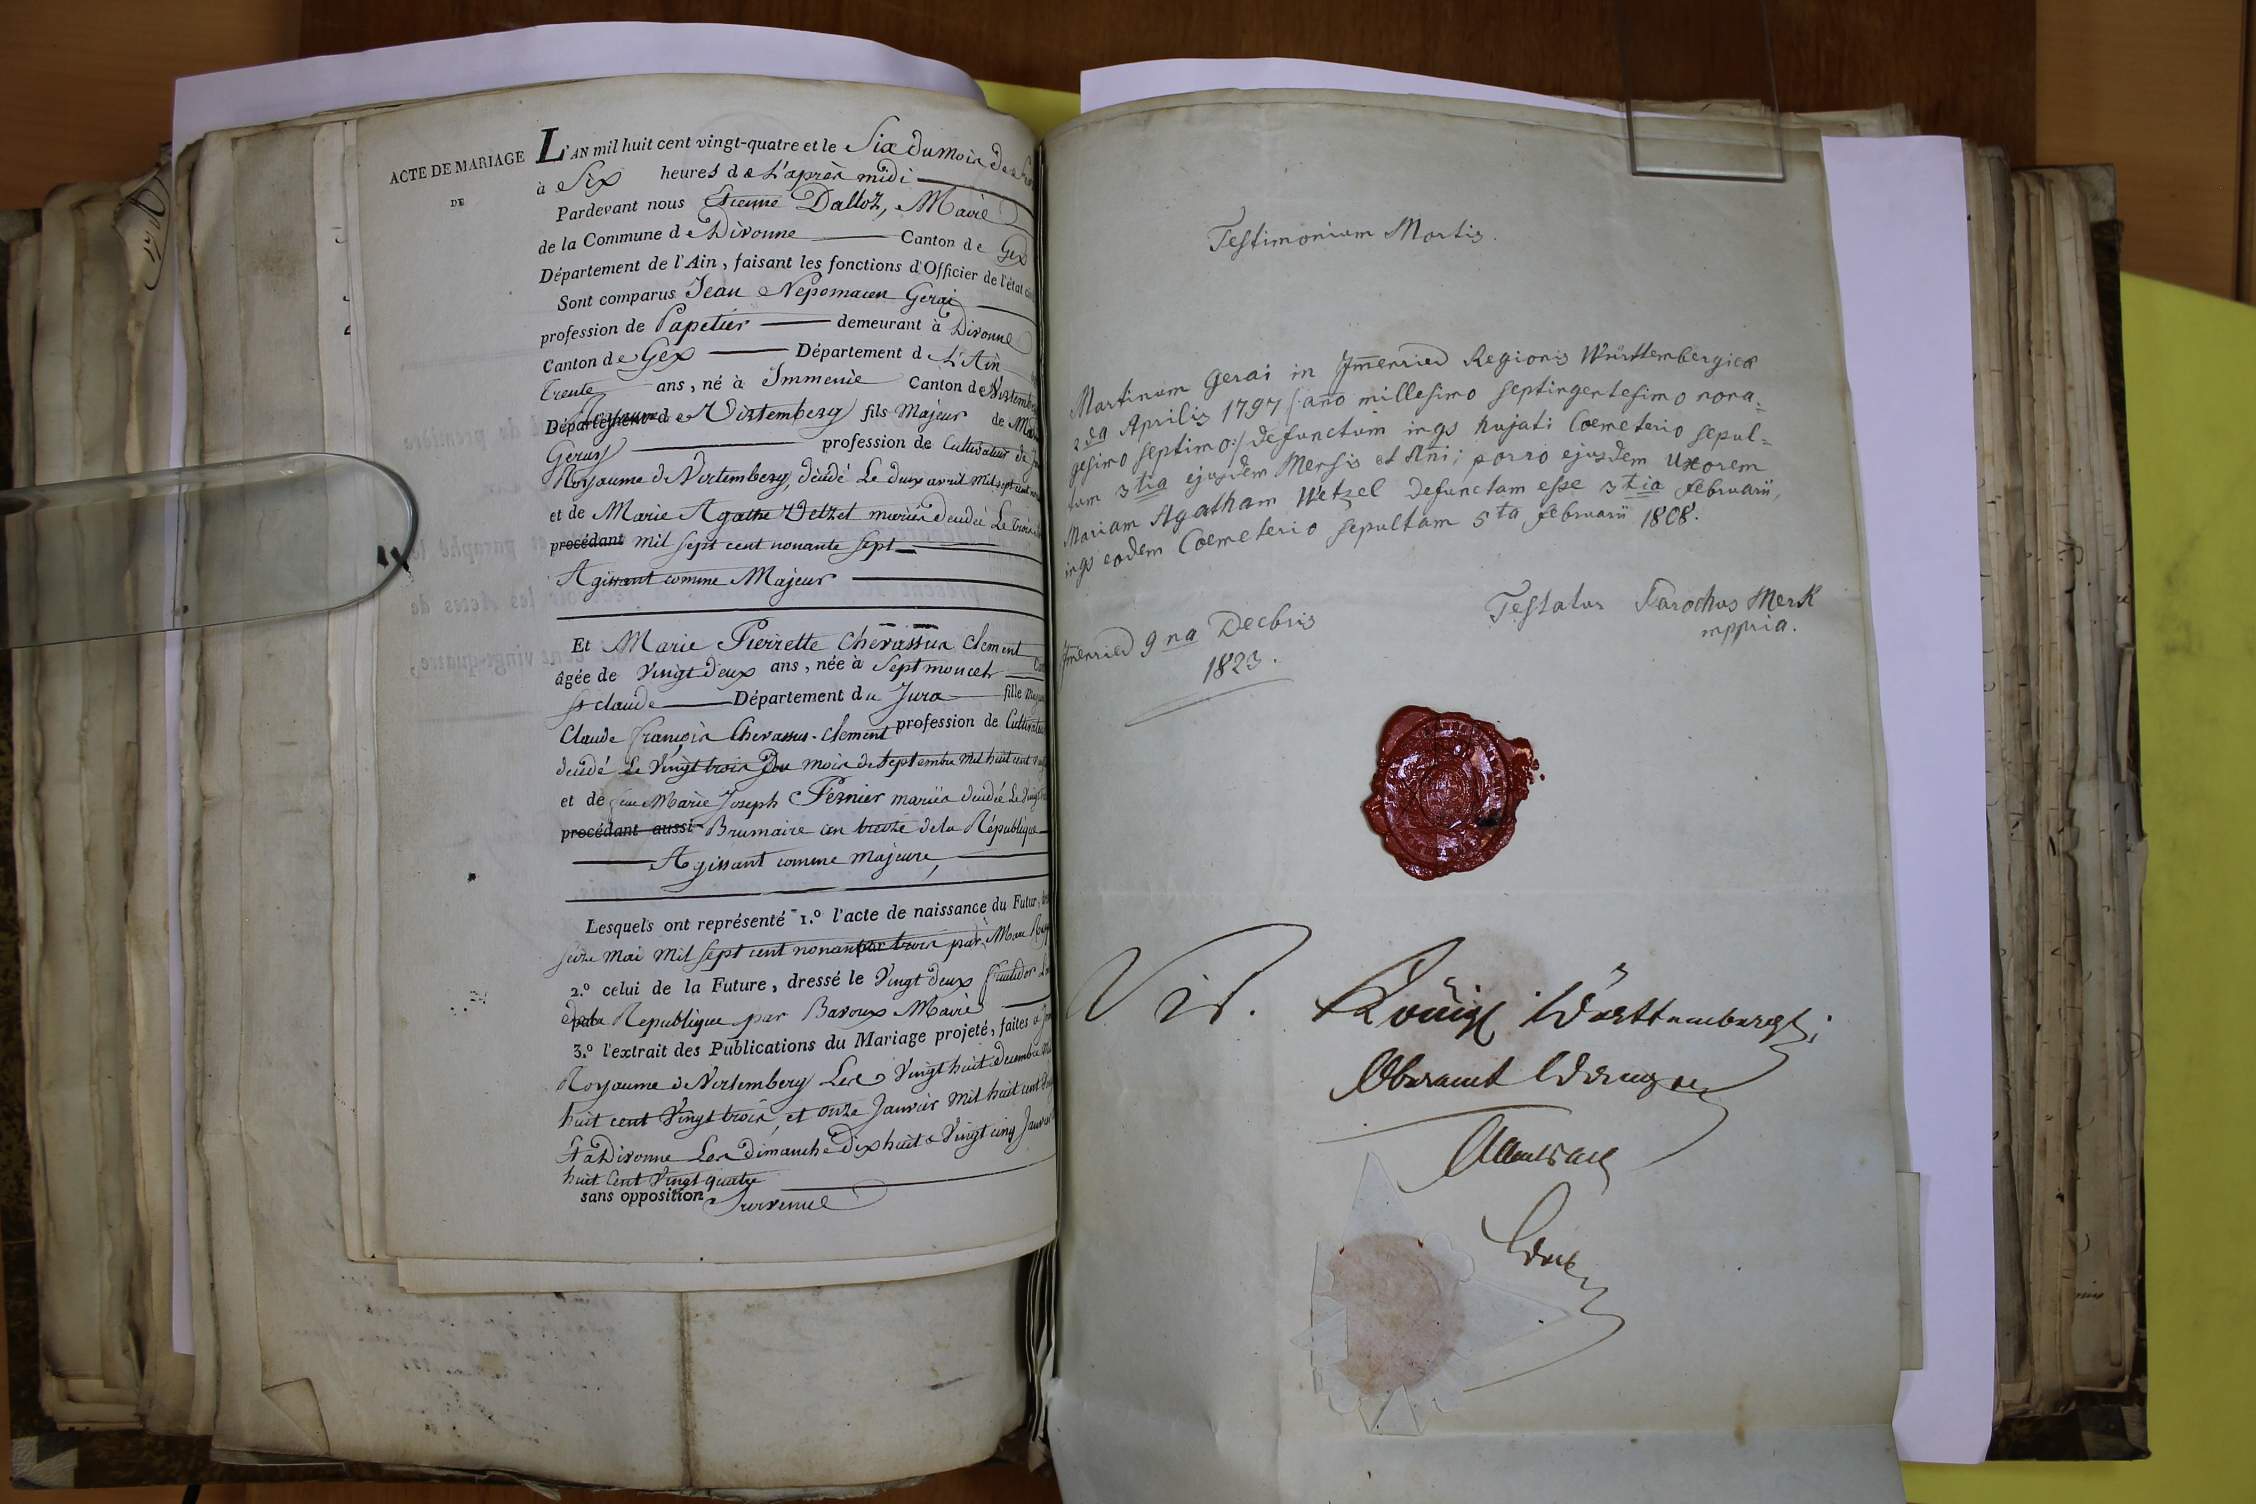 ACTE DE MARIAGE
DE
L'AN mil huit cent vingt-quatre et le Six du mois de
à Six heures de L'après midi
Pardevant nous Etienne Dalloz, Maire
de la Commune de Divonne Canton de Gex
Département de l'Ain, faisant les fonctions d'Officier de l'état
Sont comparus Jean Nepomucen Gerai
profession de Papetier demeurant à Divonne
Canton de Gex Département de L'Ain
trente ans, né à Immerie Canton de
Département de Virtemberg fils Majeur de
Geray profession de Cultivateur
Royaume de Virtemberg, décédé Le deux avril mil sept cent
et de Marie Agathe Vetzel mariés décédée Le trois
procédant mil sept cent nonante sept
Agissant comme Majeur
Et Marie Pierrette Chevassus Clement
âgée de Vingt deux ans, née à Septmoncel
St claude Département du Jura fille
Claude François Chevassus-Clement profession de Cultivateur
décédé Le Vingt trois du mois de Septembre mil huit cent
et de feue Marie Joseph Pernier mariés décédée Le Vingt
procédant aussi Brumaire an treize de la République
Agissant comme majeure,
Lesquels ont représenté 1.º l'acte de naissance du Futur,
seize Mai mil sept cent nonante trois par
2.º celui de la Future, dressé le Vingt deux fructidor
de la Republique par Baroux Maire
3.º l'extrait des Publications du Mariage projeté, faites à
Royaume de Virtemberg Les Vingt huit decembre
huit cent Vingt trois, et onze Janvier mil huit cent
Et à Divonne Les dimanche Dix huit & Vingt cinq
huit Cent Vingt quatre
sans opposition Survenue
Testimonium Mortis.
Martinum Gerai in Im̅enried Regionis Württembergicæ
2da Aprilis 1797 (: año millesimo septingentesimo nona=
gesimo septimo:) defunctum inqs hujati Coemeterio sepul=
tum 3tia ejusdem Mensis et Añi; porro ejusdem Uxorem
Mariam Agatham Wetzel defunctam esse 3tia februarii,
inqs eodem Coemeterio sepultam 5ta februarii 1808.
Testatur Parochus Merk
mppria.
Im̅enried 9na Decbris
1823.
Vid. Königl. Württembergl:
Oberamt Wangen